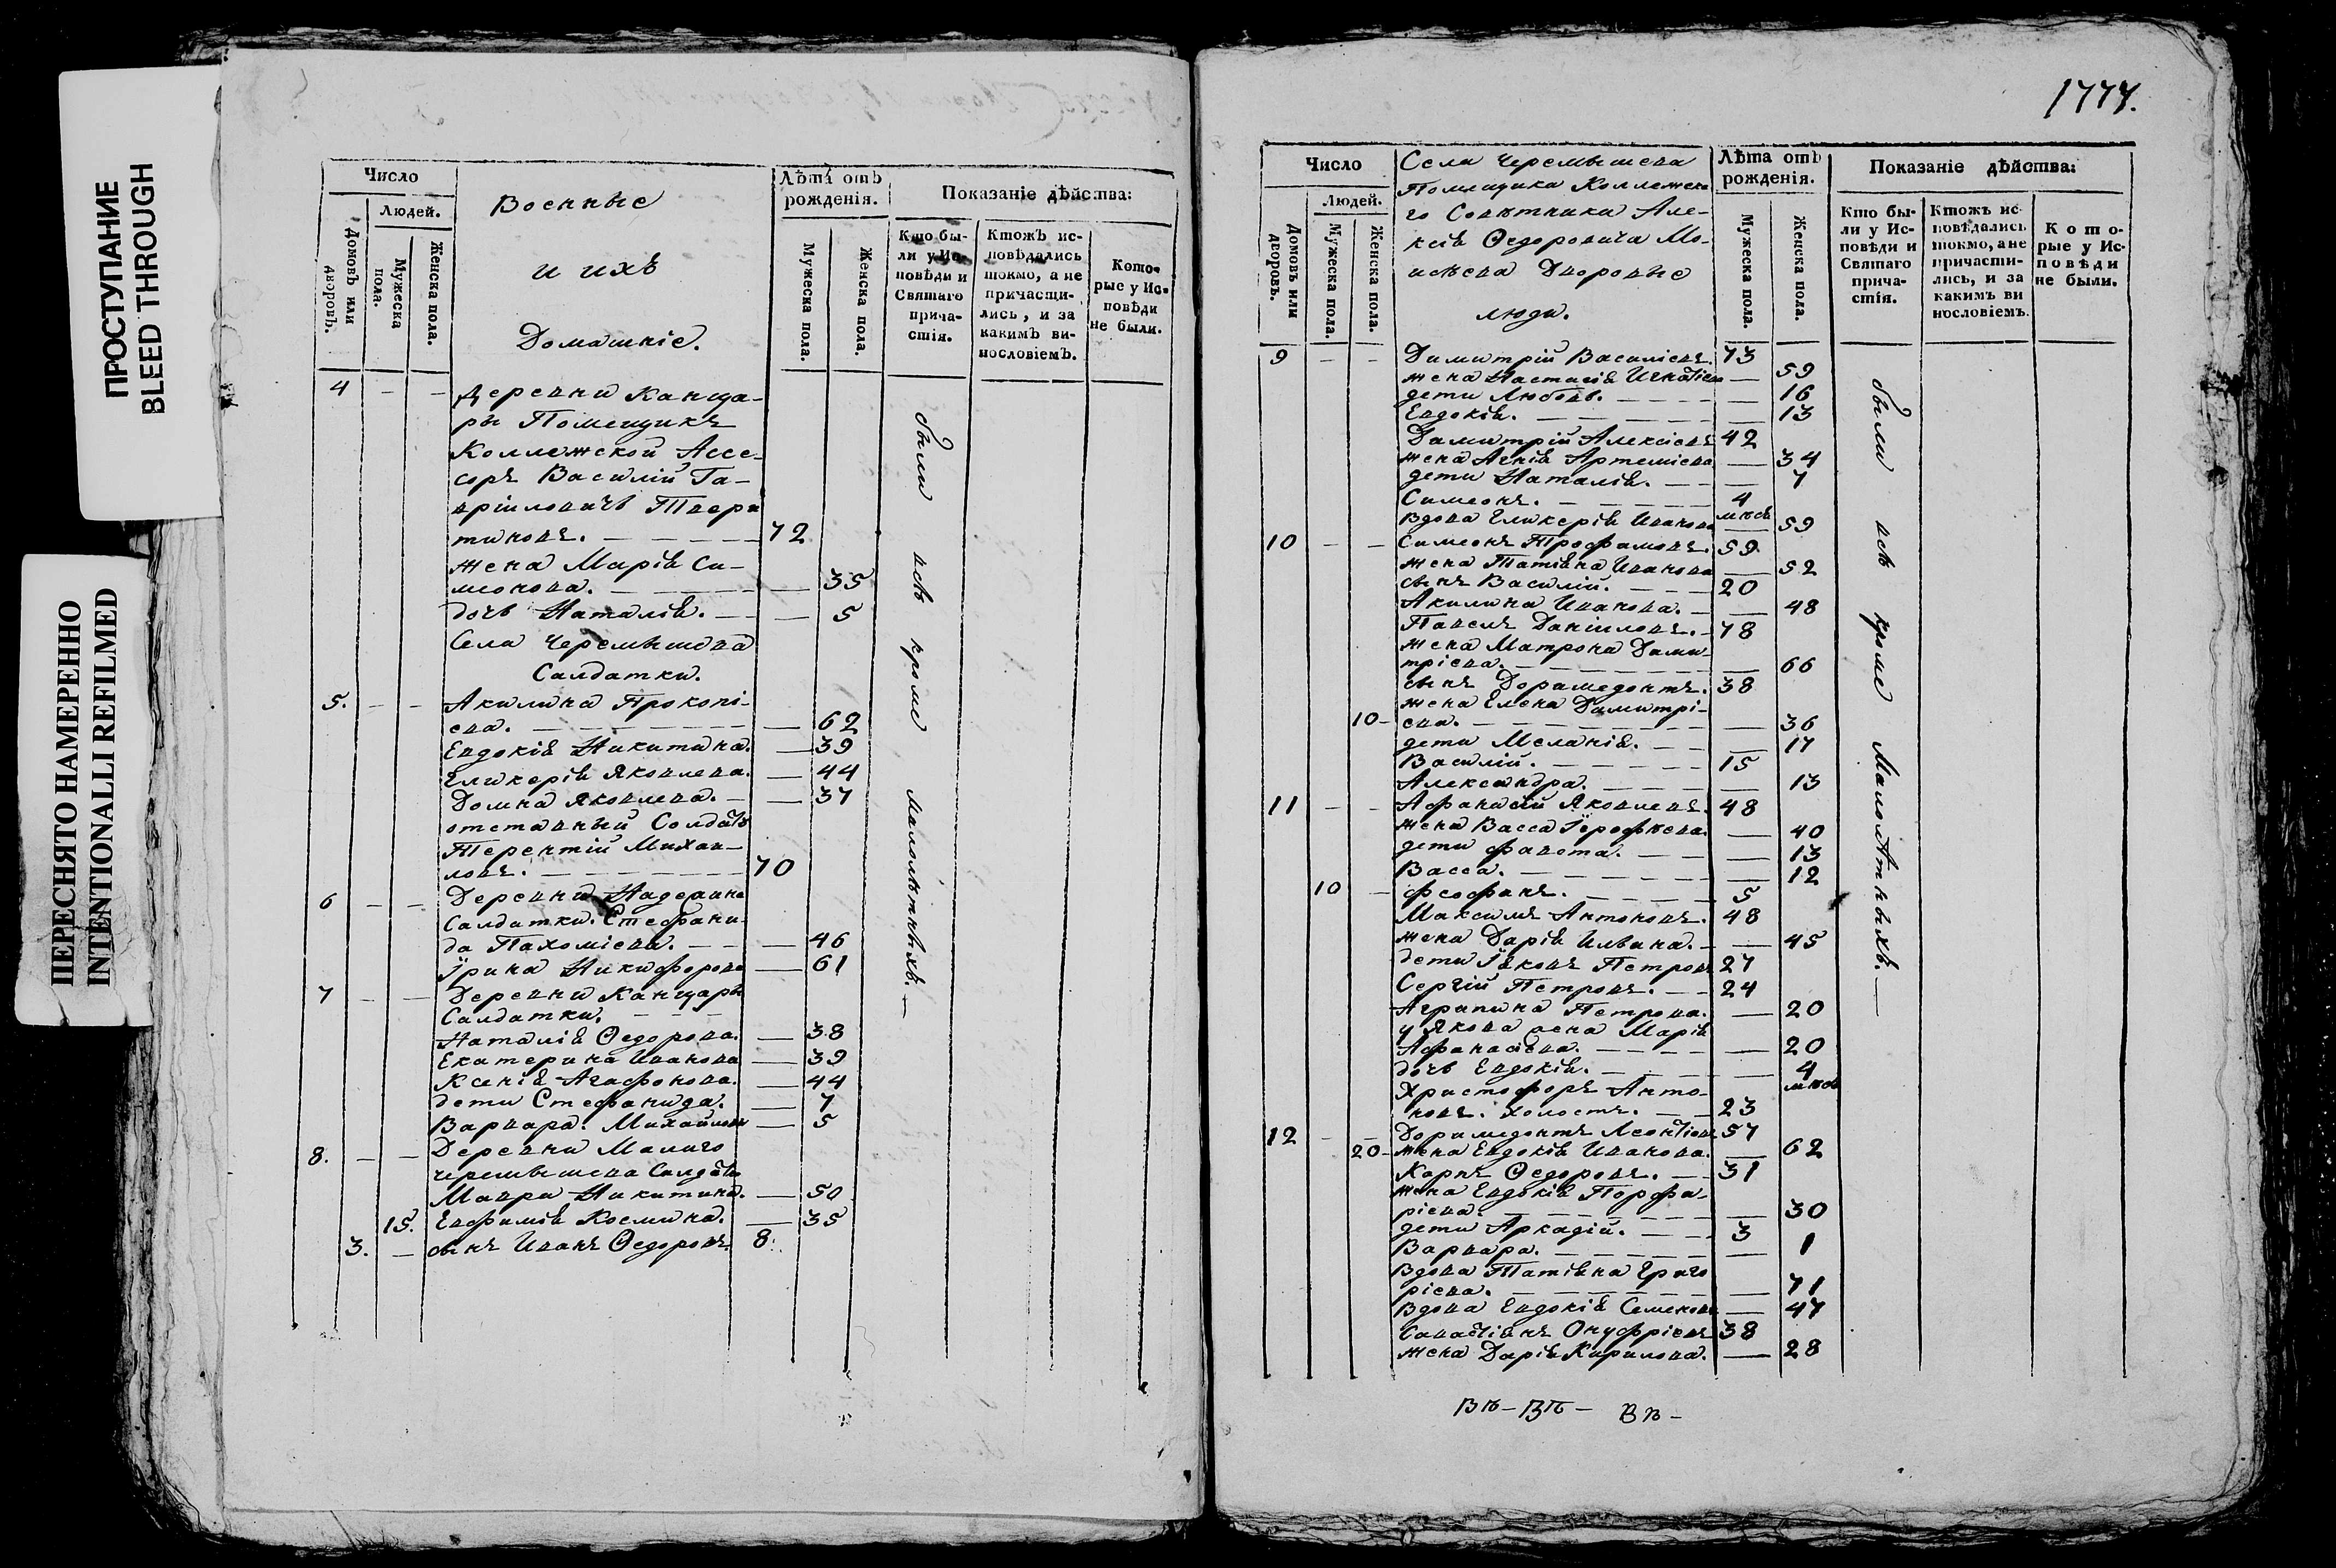 ПРОСТУПАНИЕ
BLEED THROUGH
ПЕРЕСНЯТО НАМЕРЕННО
INTENTIONALLI REFILMED
Число
Людей.
Домовъ или дворовъ.
Мужеска пола.
Женска пола.
Военные
и ихъ
Домашніе.
Лѣта отъ рожденія.
Мужеска пола.
Женска пола.
Показаніе дѣйства:
Кто бы-
ли у Ис-
повѣди и
Святаго
прича-
стія.
Ктожъ ис-
повѣдались
токмо, а не
причасти-
лись, и за
какимъ ви-
нословіемъ.
Кото-
рые у Ис-
повѣди
не были.
4 - - Деревни Канца-
ры Помещикъ
Коллежской Ассе-
соръ Василий Га-
вріиловичъ Твери
тиновъ. — 72
жена Марія Си-
меонова. — 35
дочь Наталія. — 5
Села Черемышева
Салдатки.
5. - - Акилина Прокопі-
ева. — 62
Евдокія Никитина. — 39
Гликерія Яковлева. — 44
Домна Яковлева. — 37
отставный Солдатъ
Терентій Михаи-
ловъ. — 70
6 - - Деревни
Салдатки. Стефани-
да Пахоміева. — 46
Ірина Никифорова — 61
7 - - Деревни Канцары
Салдатки. —
Наталія Ѳедорова. — 38
Екатерина Иванова — 39
Ксенія Агафонова. — 44
дети Стефанида. — 7
Варвара. Михайловы — 5
8. - - Деревни Малаго
черемышева Салдатки
Мавра Никитина. — 50
15. Евфимія Космина. — 35
3. — сынъ Иванъ Ѳедоровъ. 8.
были всѣ кроме малолѣтныхъ. —
1777.
Число
Людей.
Домовъ или дворовъ.
Мужеска пола.
Женска пола.
Села Черемышева
Помещика Коллежска
го Советника Але-
ксія Ѳедоровича Мо-
исеева Дворовые
люди.
Лѣта отъ рожденія.
Мужеска пола.
Женска пола.
Показаніе дѣйства:
Кто бы-
ли у Ис-
повѣди и
Святаго
прича-
стія.
Ктожъ ис-
повѣдались
токмо, а не
причасти-
лись, и за
какимъ ви
нословіемъ.
Кото-
рые у Ис-
повѣди
не были.
9 - - Димитрій Василіевъ. 73
жена Настасія Игнатіева — 59
дети Любовь. — 16
Евдокія. — 13
Димитрій Алексіевъ 42
жена Агнія Артеміева — 34
дети Наталія. — 7
Симеонъ. — 4 мѣся
Вдова Гликерія Иванова — 59
10 - - Симеонъ Трофимовъ. 59
жена Татіана Иванова — 52
сынъ Василій. — 20
Акилина Иванова. — 48
Павелъ Даніиловъ. - 78
жена Матрона Дими-
тріева. — 66
сынъ Доримедонтъ. 38
жена Елена Димитрі-
10- ева. — 36
дети Меланія. — 17
Василій. — 15
Александра. — 13
11 - - Афанасій Яковлевъ. 48
жена Васса Іерофѣева. — 40
дети — 13
Васса. — 12
10 - Феофанъ. — 5
Максимъ Антоновъ. 48
жена Дарія Ильина. — 45
дети Іаковъ Петровъ 27
Сергій Петровъ. — 24
Агрипина Петрова. — 20
у Якова жена Марія
Афанасіева. — 20
дочь Евдокія. — 4 мѣся
Христофоръ Анто-
новъ. холостъ. — 23
12 - - Доримедонтъ Леонтіевъ 57
20- жена Евдокія Иванова. — 62
Карпъ Ѳедоровъ. — 31
жена Евдокія Порфи-
ріева. — 30
дети Аркадій. — 3
Варвара. — 1
Вдова Татіана Григо
ріева. — 71
Вдова Евдокія Семенова — 47
Савастіанъ Онуфріевъ 38
жена Дарія Кирилова. — 28
были всѣ кроме Малолѣтныхъ. —